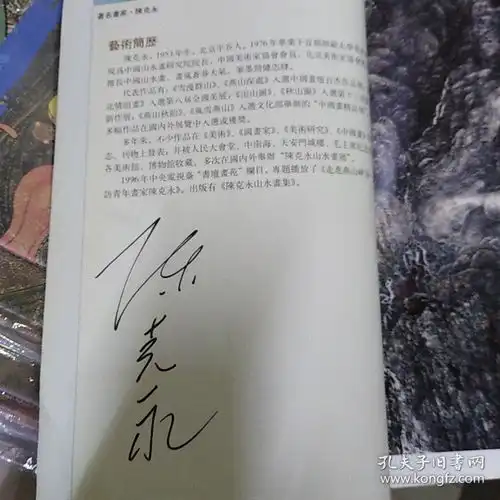 著名畫家·陳克永
藝術簡歷
陳克永，1953年生，北京平谷人，1976年畢業于首都師範大學美術
現爲中國山水畫研究院院長，中國美術家協會會員，北京美術家協會
擅長中國山水畫，畫風蒼莽大氣，筆墨簡健
代表作品有：《雪漫群山》、《燕山深處》入選中國畫
》入選第八届全國美展；《
新作展；《燕山秋韻》、《風雪燕山》入選文化部舉辦的“中國畫精品展
多幅作品在國内外展覽中入選或獲獎。
多年來，不少作品在《美術》、《國畫家》、《美術研究》、《中國畫》
志、刊物上發表；并被人民大會堂、中南海、天安門城樓、毛主席紀念
各美術館、博物館收藏。多次在國内外舉辦“陳克永山水畫展”。
1996年中央電視臺“書壇畫苑”欄目，專題播放了《走進燕山
訪青年畫家陳克永》。出版有《陳克永山水畫集》。
陈
克
永
孔夫子旧书网
www.kongfz.com